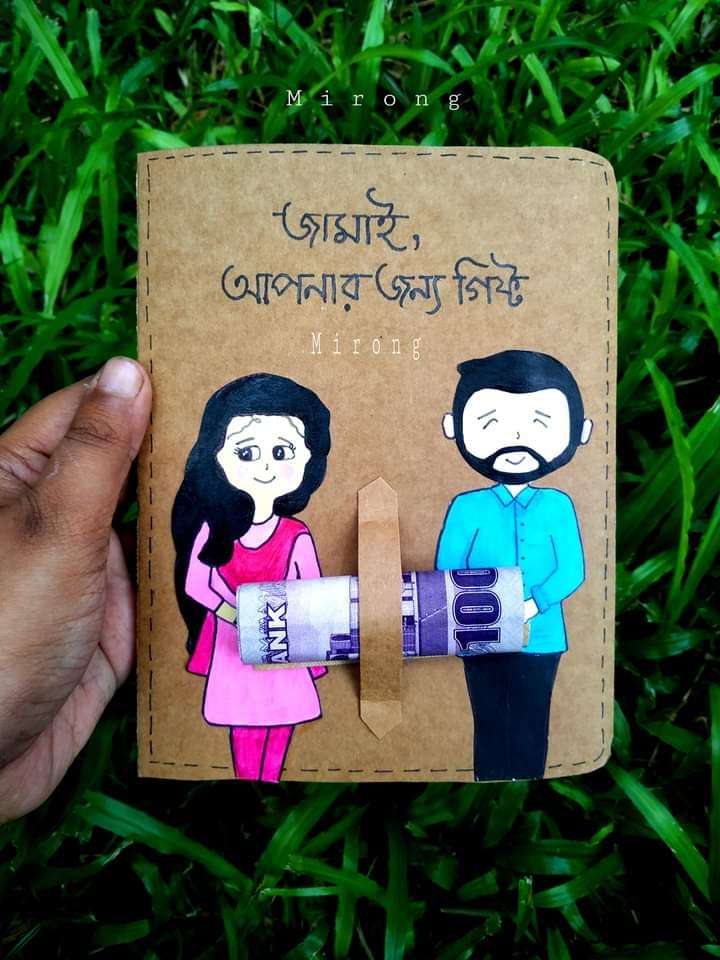 Mirong
জামাই,
আপনার জন্য গিফ্ট
Mirong
ANK
100